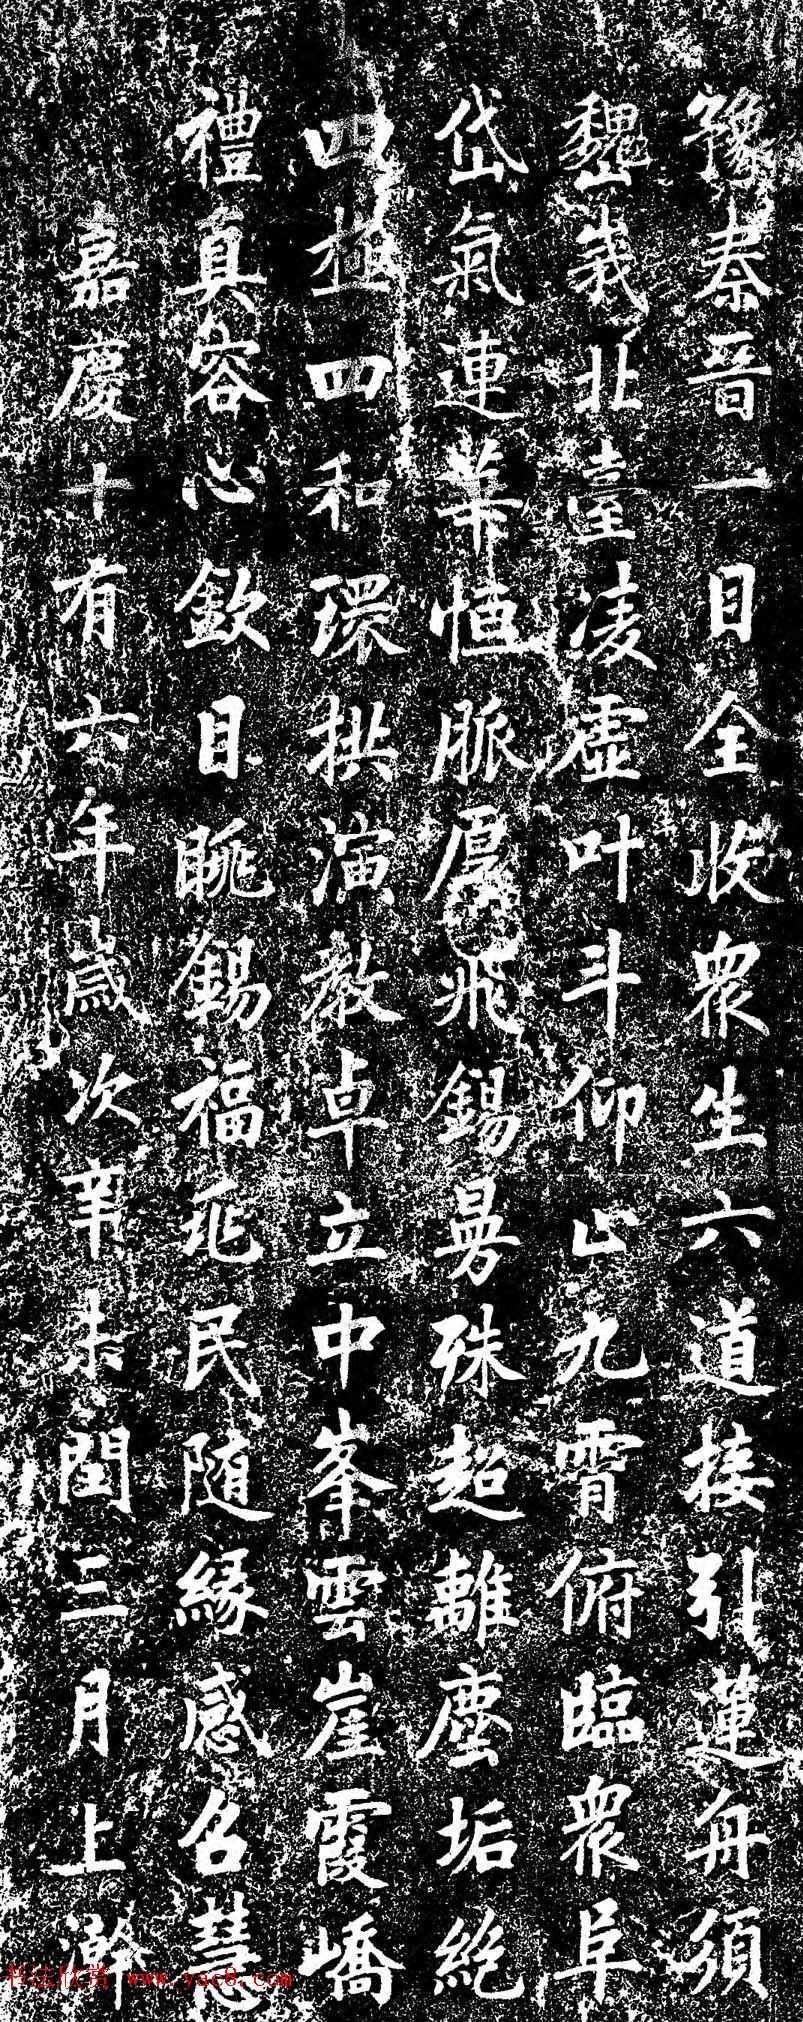 豫秦晉一目全收眾生六道接引蓮舟須
巍峩北臺凌虛叶斗仰止九霄俯臨眾阜
岱氣連華恒脈厚飛錫曇殊超離塵垢絶
四極四和環拱演教卓立中峯雲崖霞嶠
禮真容心欽目眺錫福兆民隨緣感召慧
嘉慶十有六年歲次辛未閏三月上澣
书法欣赏 www.yac8.com